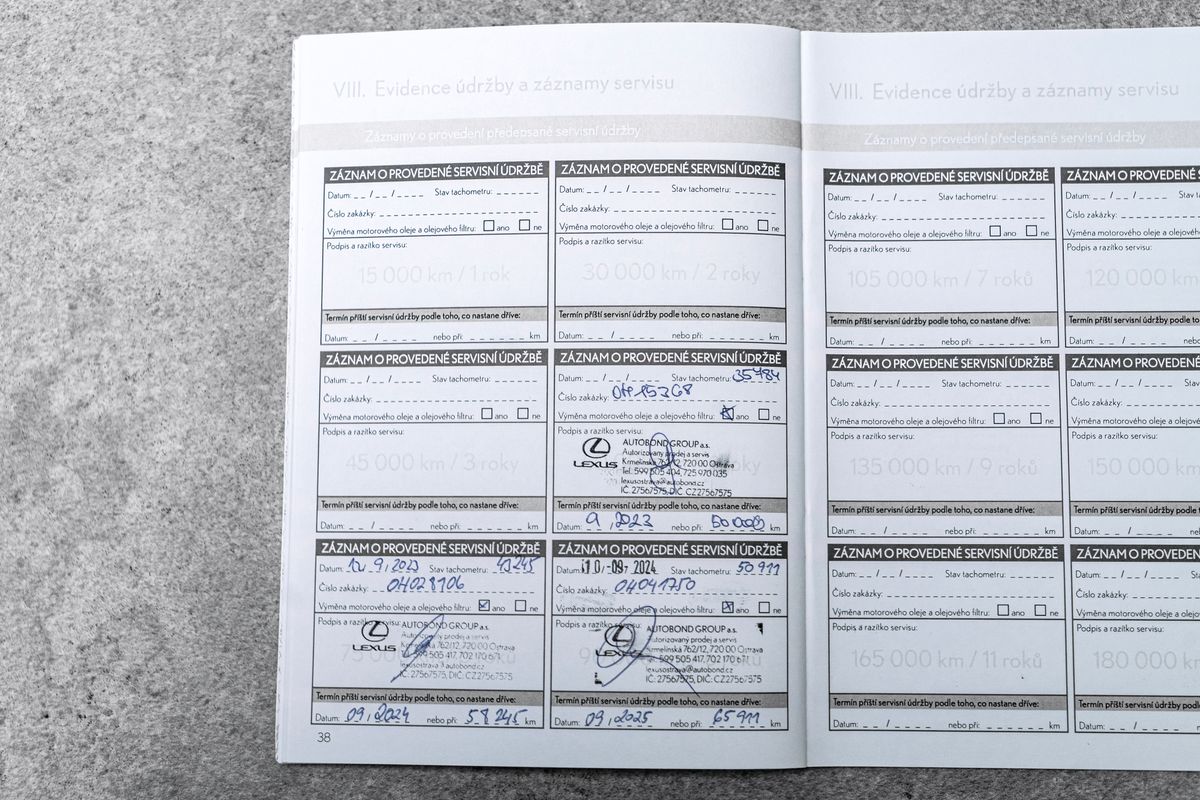 VIII. Evidence údržby a záznamy servisu
Záznamy o provedení předepsané servisní údržby
ZÁZNAM O PROVEDENÉ SERVISNÍ ÚDRŽBĚ
Datum: _ _ / _ _ / _ _ _ _ Stav tachometru: _ _ _ _ _ _
Číslo zakázky:
Výměna motorového oleje a olejového filtru: ano ne
Podpis a razítko servisu:
15 000 km / 1 rok
Termín příští servisní údržby podle toho, co nastane dříve:
Datum: _ _ / _ _ _ _ nebo při: _ _ _ _ _ _ km
ZÁZNAM O PROVEDENÉ SERVISNÍ ÚDRŽBĚ
Datum: _ _ / _ _ / _ _ _ _ Stav tachometru: _ _ _ _ _ _
Číslo zakázky:
Výměna motorového oleje a olejového filtru: ano ne
Podpis a razítko servisu:
30 000 km / 2 roky
Termín příští servisní údržby podle toho, co nastane dříve:
Datum: _ _ / _ _ _ _ nebo při: _ _ _ _ _ _ km
ZÁZNAM O PROVEDENÉ SERVISNÍ ÚDRŽBĚ
Datum: _ _ / _ _ / _ _ _ _ Stav tachometru: _ _ _ _ _ _
Číslo zakázky:
Výměna motorového oleje a olejového filtru: ano ne
Podpis a razítko servisu:
45 000 km / 3 roky
Termín příští servisní údržby podle toho, co nastane dříve:
Datum: _ _ / _ _ _ _ nebo při: _ _ _ _ _ _ km
ZÁZNAM O PROVEDENÉ SERVISNÍ ÚDRŽBĚ
Datum: _ _ / _ _ / _ _ _ _ Stav tachometru: 35784
Číslo zakázky:
Výměna motorového oleje a olejového filtru: ano ne
Podpis a razítko servisu:
LEXUS
AUTOBOND GROUP a.s.
Autorizovaný prodej a servis
Krmelínská 762/12, 720 00 Ostrava
Tel. 599 505 404, 725 970 035
lexusostrava@autobond.cz
IČ: 27567575, DIČ: CZ27567575
Termín příští servisní údržby podle toho, co nastane dříve:
Datum: 9, 2023 nebo při: 50000 km
ZÁZNAM O PROVEDENÉ SERVISNÍ ÚDRŽBĚ
Datum: 12 9, 2023 Stav tachometru: 43245
Číslo zakázky: OH028106
Výměna motorového oleje a olejového filtru: ano ne
Podpis a razítko servisu:
LEXUS
AUTOBOND GROUP a.s.
Autorizovaný prodej a servis
Krmelínská 762/12, 720 00 Ostrava
Tel. 599 505 417, 702 170 671
lexusostrava@autobond.cz
IČ: 27567575, DIČ: CZ27567575
Termín příští servisní údržby podle toho, co nastane dříve:
Datum: 09, 2024 nebo při: 58 245 km
ZÁZNAM O PROVEDENÉ SERVISNÍ ÚDRŽBĚ
Datum: 10 -09- 2024 Stav tachometru: 50 911
Číslo zakázky: OH041750
Výměna motorového oleje a olejového filtru: ano ne
Podpis a razítko servisu:
LEXUS
AUTOBOND GROUP a.s.
Autorizovaný prodej a servis
Krmelínská 762/12, 720 00 Ostrava
Tel. 599 505 417, 702 170 671
lexusostrava@autobond.cz
IČ: 27567575, DIČ: CZ27567575
Termín příští servisní údržby podle toho, co nastane dříve:
Datum: 09, 2025 nebo při: 65 911 km
38
VIII. Evidence údržby a záznamy servisu
Záznamy o provedení předepsané servisní údržby
ZÁZNAM O PROVEDENÉ SERVISNÍ ÚDRŽBĚ
Datum: _ _ / _ _ / _ _ _ _ Stav tachometru: _ _ _ _ _ _
Číslo zakázky:
Výměna motorového oleje a olejového filtru: ano ne
Podpis a razítko servisu:
105 000 km / 7 roků
Termín příští servisní údržby podle toho, co nastane dříve:
Datum: _ _ / _ _ _ _ nebo při: _ _ _ _ _ _ km
ZÁZNAM O PROVEDENÉ
Datum: _ _ / _ _ / _ _ _ _
Číslo zakázky:
Výměna motorového oleje a olejového
Podpis a razítko servisu:
120 000 km
Termín příští servisní údržby podle
Datum: _ _ / _ _ _ _
ZÁZNAM O PROVEDENÉ SERVISNÍ ÚDRŽBĚ
Datum: _ _ / _ _ / _ _ _ _ Stav tachometru: _ _ _ _ _ _
Číslo zakázky:
Výměna motorového oleje a olejového filtru: ano ne
Podpis a razítko servisu:
135 000 km / 9 roků
Termín příští servisní údržby podle toho, co nastane dříve:
Datum: _ _ / _ _ _ _ nebo při: _ _ _ _ _ _ km
ZÁZNAM O PROVEDENÉ
Datum: _ _ / _ _ / _ _ _ _
Číslo zakázky:
Výměna motorového oleje a olejového
Podpis a razítko servisu:
150 000 km
Termín příští servisní údržby podle
Datum: _ _ / _ _ _ _
ZÁZNAM O PROVEDENÉ SERVISNÍ ÚDRŽBĚ
Datum: _ _ / _ _ / _ _ _ _ Stav tachometru: _ _ _ _ _ _
Číslo zakázky:
Výměna motorového oleje a olejového filtru: ano ne
Podpis a razítko servisu:
165 000 km / 11 roků
Termín příští servisní údržby podle toho, co nastane dříve:
Datum: _ _ / _ _ _ _ nebo při: _ _ _ _ _ _ km
ZÁZNAM O PROVEDENÉ
Datum: _ _ / _ _ / _ _ _ _
Číslo zakázky:
Výměna motorového oleje a olejového
Podpis a razítko servisu:
180 000 km
Termín příští servisní údržby podle
Datum: _ _ / _ _ _ _